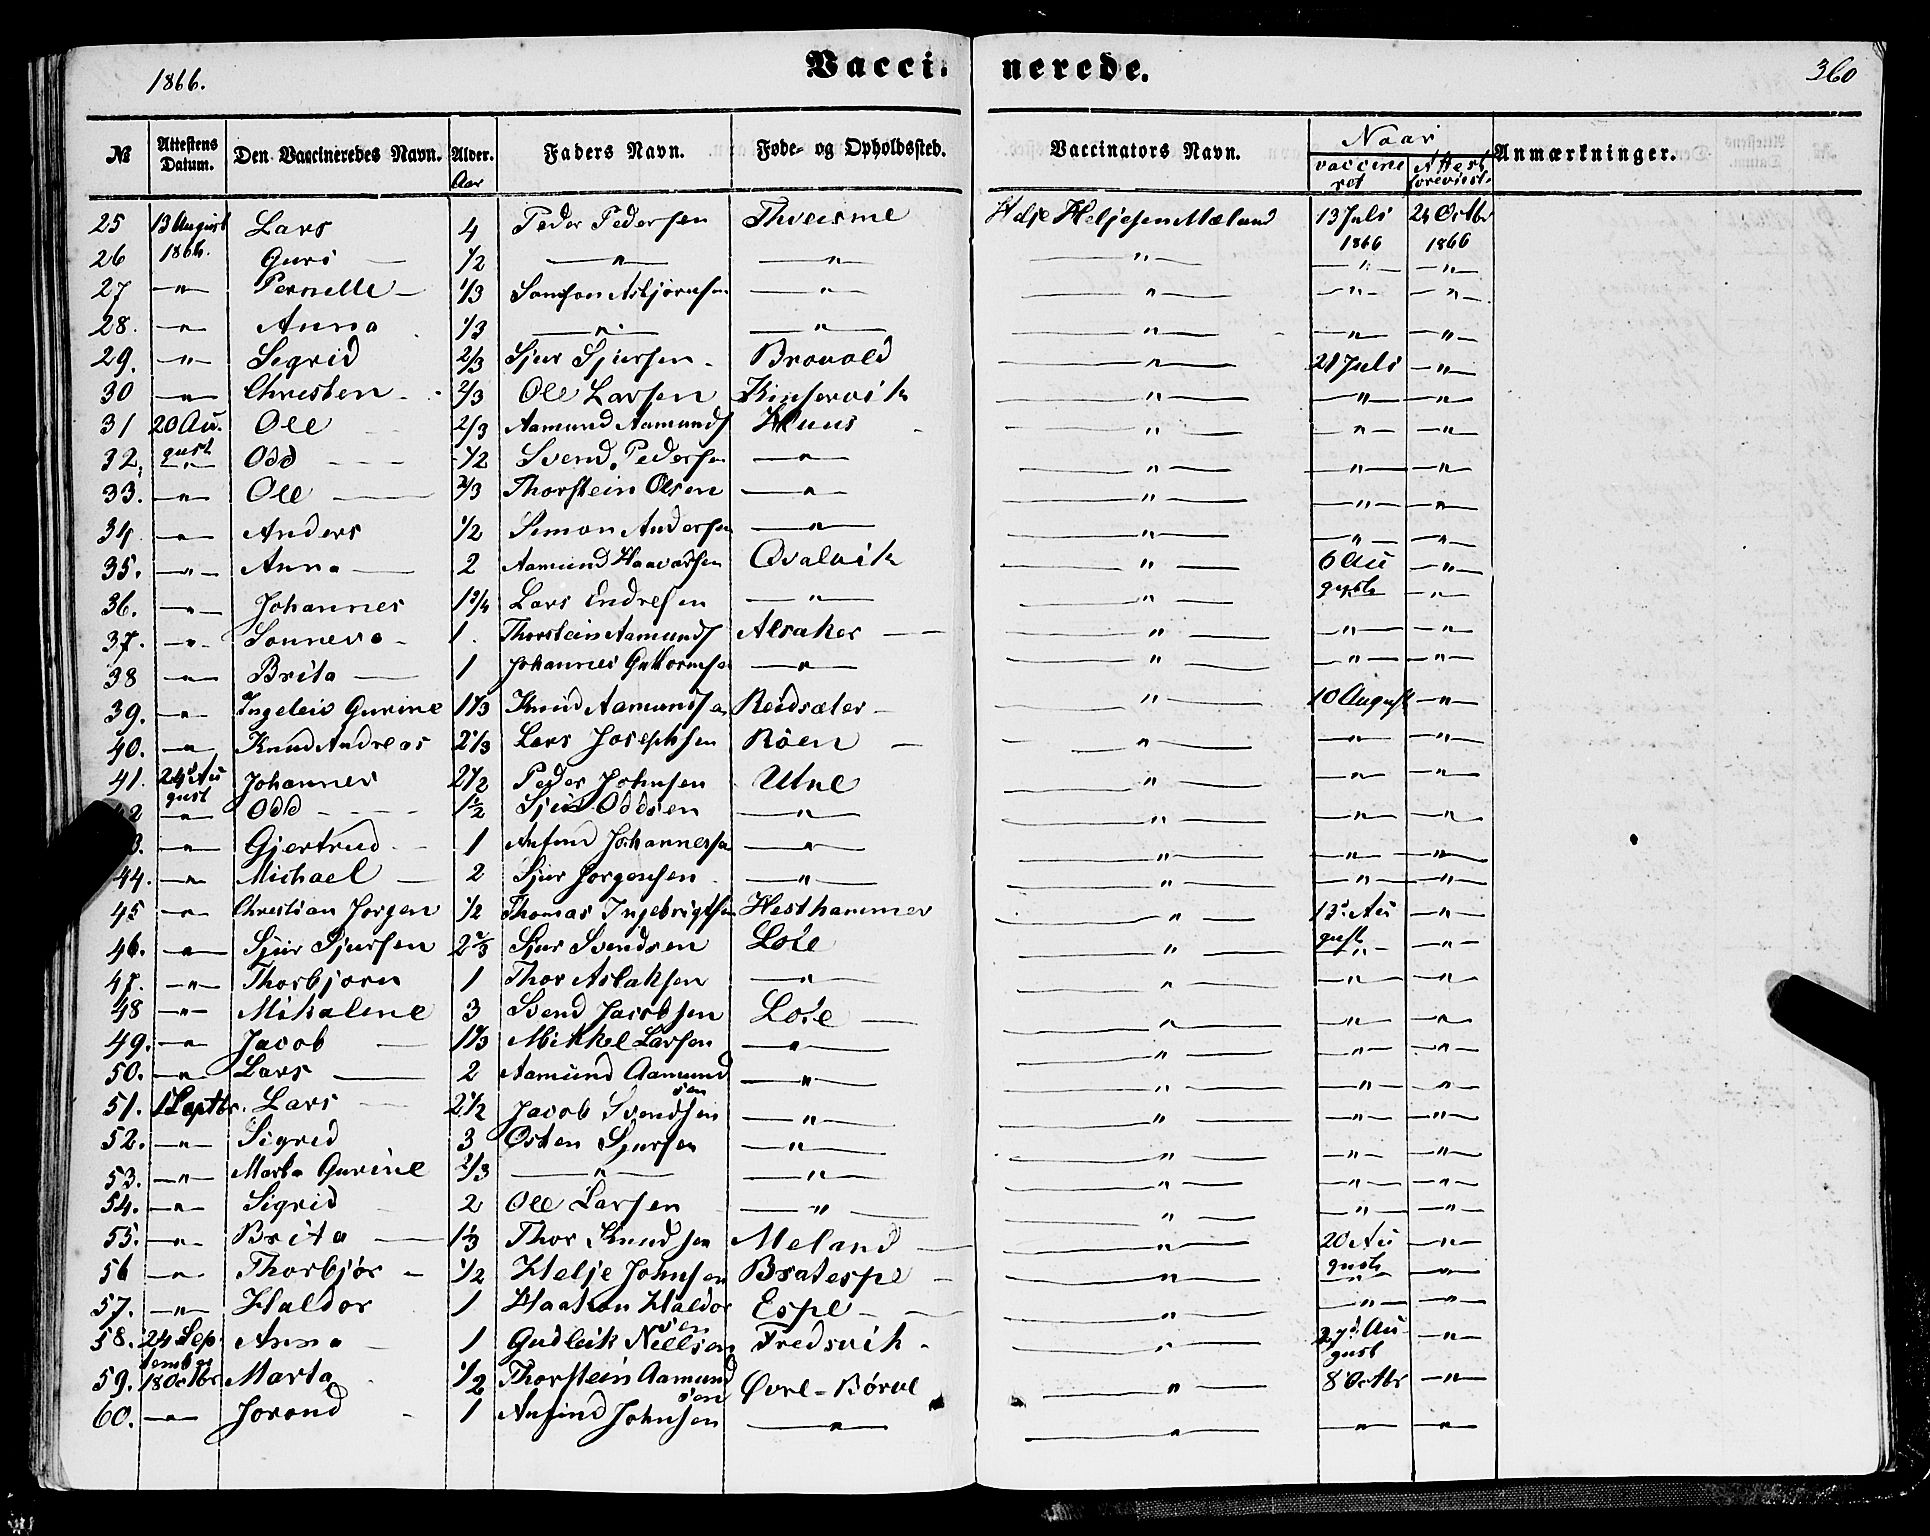 1866.
Vaccinerede.
360
№ Attestens Datum. Den Vaccineredes Navn. Alder. Aar Faders Navn. Føde- og Opholdssted. Vaccinators Navn. Naar vaccineret Attest foreviist. Anmærkninger.
25 13 August 1866. Lars 4 Peder Pedersen Helje Heljesen Mæland 13 Juli 1866 24 Octbr 1866
26 Guri — 1/2 —"— —"— —"— —"— —"—
27 —"— Pernille — 1/3 Samson Asbjørnsen —"— —"— —"— —"—
28. —"— Anna 1/3 —"— —"— —"— —"— —"—
29. —"— Sigrid 2/3 Sjur Sjursen Bravold —"— 21 Juli —"—
30 —"— Christen 2/3 Ole Larsen Kinservik —"— —"— —"—
31 20 August Ole 2/3 Aamund Aamunds Huus —"— —"— —"—
32. —"— Odd 1/2 Svend Pedersen —"— —"— —"— —"—
33. —"— Ole 2/3 Thorstein Olsen —"— —"— —"— —"—
34 —"— Anders 1/2 Simon Andersen —"— —"— —"— —"—
35. —"— Anna 2 Aamund Haavarsen Qvalvik —"— 6 August —"—
36. —"— Johannes 1 3/4 Lars Endresen —"— —"— —"— —"—
37. —"— Sonneva 1. Thorstein Aamunds Alsaker —"— —"— —"—
38 —"— Brita 1 Johannes Guttormsen —"— —"— —"— —"—
39. —"— Ingeleiv Gurine 1 1/3 Knud Aamundsen Reidsæter —"— 10 August —"—
40. —"— Knud Andreas 2 1/3 Lars Josephsen Röen —"— —"— —"—
41. 24 August Johannes 2 1/2 Peder Johnsen Utne —"— —"— —"—
42 —"— Odd 1 1/2 Sjur Oddsen —"— —"— —"— —"—
3. —"— Gjertrud 1 Anfind Johannessen —"— —"— —"— —"—
44. —"— Michael 2 Sjur Jorgensen —"— —"— —"— —"—
45 —"— Christian Jorgen 1/2 Thomas Ingebrigtsen Hesthammer —"— 13 August —"—
46. —"— Sjur Sjursen 2 2/3 Sjur Svendsen Lote —"— —"— —"—
47. —"— Thorbjorn 1 Thor Aslaksen —"— —"— —"— —"—
48 —"— Mikaline 3 Svend Jacobsen Lote —"— —"— —"—
49. —"— Jacob 1 1/3 Mikkel Larsen —"— —"— —"— —"—
50. —"— Lars 2 Aamund Aamundsen —"— —"— —"— —"—
51. 1 Septbr. Lars 2 1/2 Jacob Svendsen —"— —"— —"— —"—
52. —"— Sigrid 3 Osten Sjursen —"— —"— —"— —"—
53. —"— Marta Gurine 2/3 —"— —"— —"— —"— —"—
54. —"— Sigrid 2 Ole Larsen —"— —"— —"— —"—
55. —"— Brita 1 1/3 Thor Knudsen Meland —"— 20 August —"—
56 —"— Thorbjør 1/2 Helje Johnsen Bratespe —"— —"— —"—
57. —"— Haldor 1 Haakon Haldorsen Espe —"— —"— —"—
58. 24 September Anna 1 Gudleik Nielsen Fredsvik —"— 27 August —"—
59. 18 Octbr Marta 1/2 Thorstein Aamundsen Øvre-Börve —"— 8 Octbr —"—
60. —"— Jorond 1 Anfind Johnsen —"— —"— —"— —"—